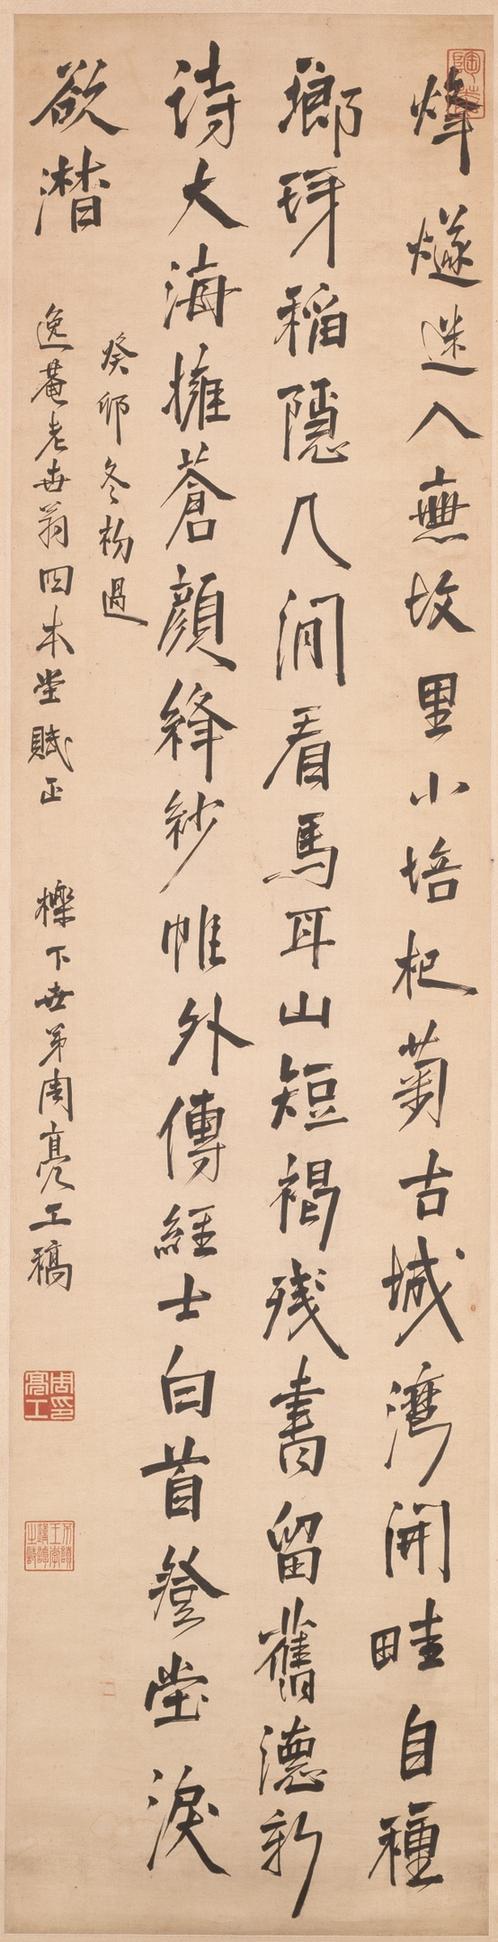 烽燧迷人無故里小培杞菊古城灣開畦自種
瑯琊稻隱几閒看馬耳山短褐残書留舊德新
詩大海擁蒼顏絳紗帷外傳經士白首登堂淚
欲潸
癸卯冬杪過
逸菴老世翁四本堂賦正 櫟下世弟周亮工稿
周亮工印